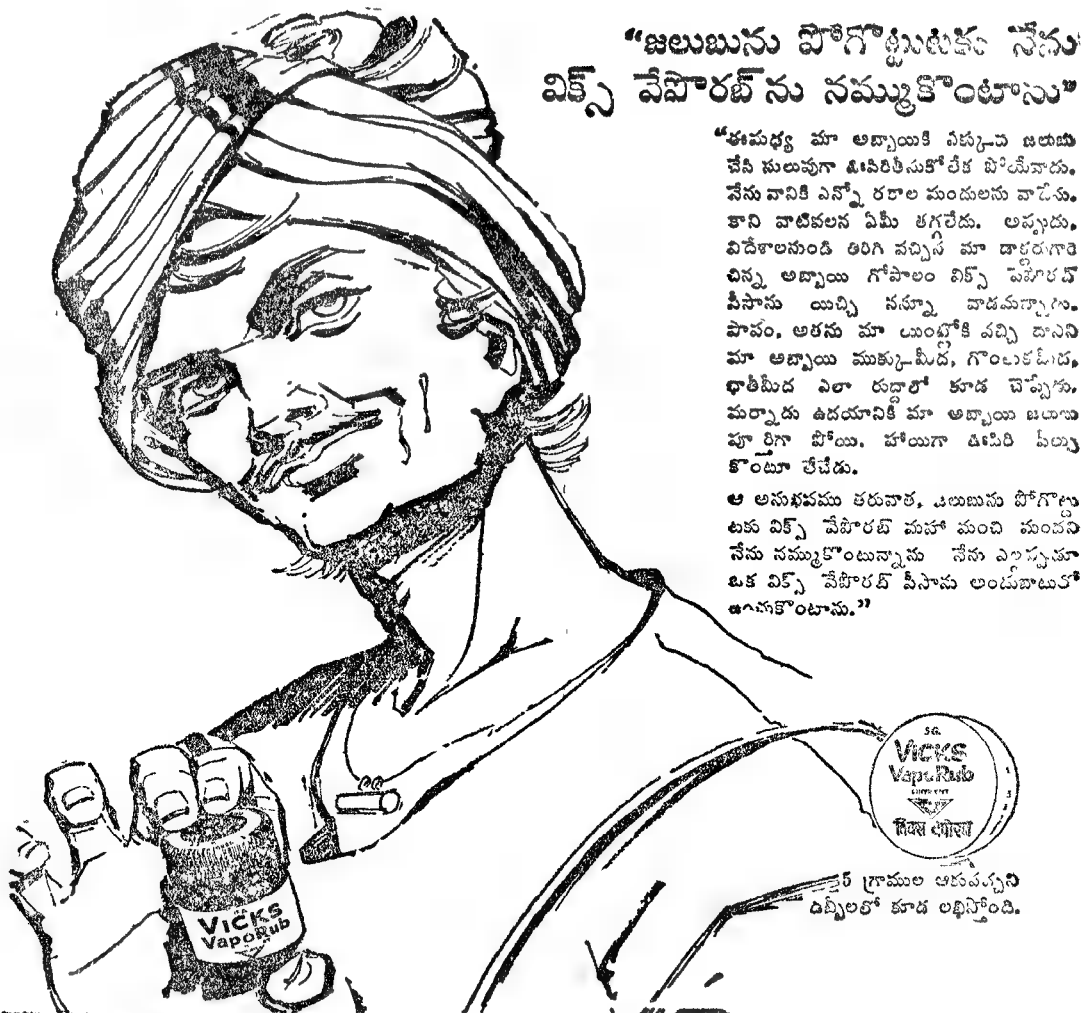 “జలుబును పోగొట్టుటకు నేను
విక్స్ వేపొరబ్ ను నమ్ముకొంటాను”
“ఈమధ్య మా అబ్బాయికి జలుబు
చేసి సులువుగా ఊపిరితీసుకోలేక పోయేవాడు.
నేను వానికి ఎన్నో రకాల మందులను వాడేను.
కాని వాటివలన ఏమీ తగ్గలేదు. అప్పుడు,
విదేశాలనుండి తిరిగి వచ్చిన మా డాక్టరుగారి
చిన్న అబ్బాయి గోపాలం విక్స్ వేపొరబ్
సీసాను యిచ్చి నన్నూ వాడమన్నాడు.
పాపం, అతను మా యింట్లోకి వచ్చి దానిని
మా అబ్బాయి ముక్కు-మీద, గొంతుకమీద,
ఛాతీమీద ఎలా రుద్దాలో కూడ చెప్పేడు.
మర్నాడు ఉదయానికి మా అబ్బాయి జలుబు
పూర్తిగా పోయి. హాయిగా ఊపిరి పీల్చు
కొంటూ లేచేడు.
ఆ అనుభవము తరువాత, జలుబును పోగొట్టు
టకు విక్స్ వేపొరబ్ మహా మంచి మందని
నేను నమ్ముకొంటున్నాను నేను ఎల్లప్పుడూ
ఒక విక్స్ వేపొరబ్ సీసాను అందుబాటులో
ఉంచుకొంటాను.”
5G.
VICKS
VapoRub
विक्स वेपोरब
5 గ్రాముల ఆకుపచ్చని
డిబ్బీలలో కూడ లభిస్తోంది.
VICKS
VapoRub